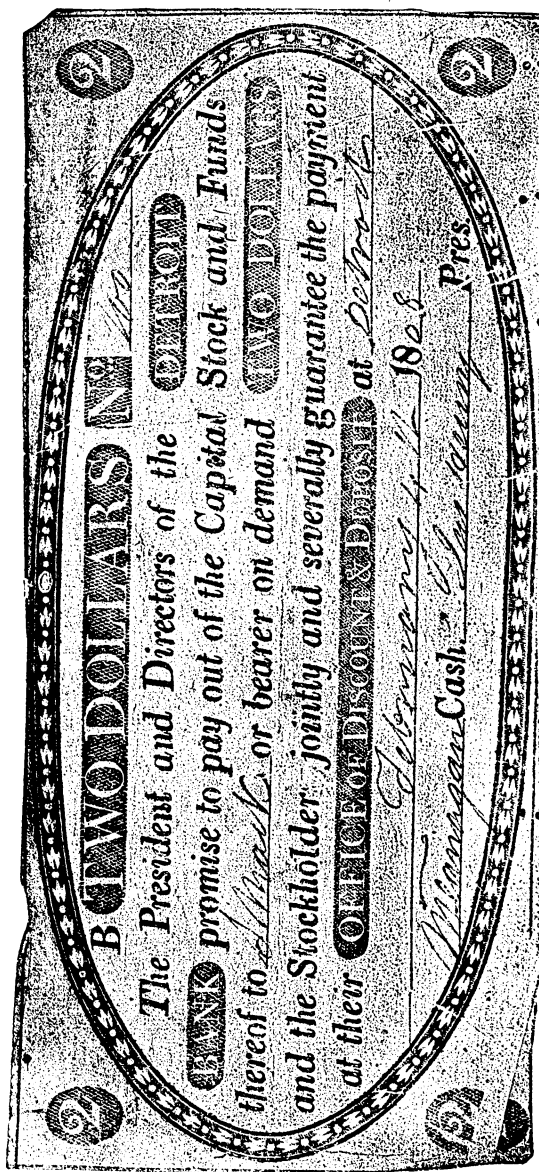 2 2
B TWO DOLLARS No
The President and Directors of the DETROIT
BANK promise to pay out of the Capital Stock and Funds
thereof to or bearer on demand TWO DOLLARS
and the Stockholder jointly and severally guarantee the payment
at their OFFICE OF DISCOUNT & DEPOSIT at Detroit
February 1808
Cash. Pres.
2 2